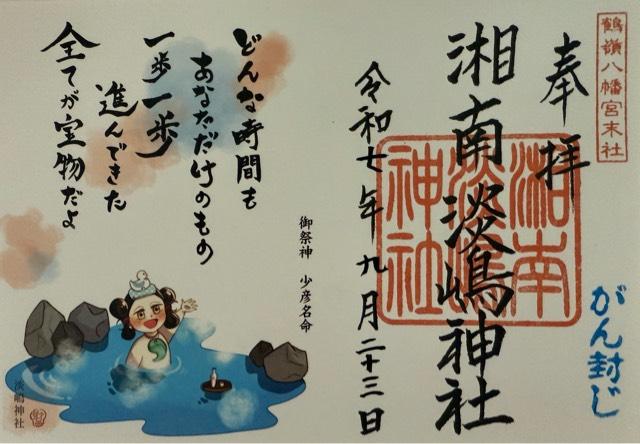 鶴嶺八幡宮末社
奉拝
湘南淡嶋神社
湘南
淡嶋
神社
令和七年九月二十三日
がん封じ
どんな時間も
あなただけのもの
一歩一歩
進んできた
全てが宝物だよ
御祭神 少彦名命
淡嶋神社